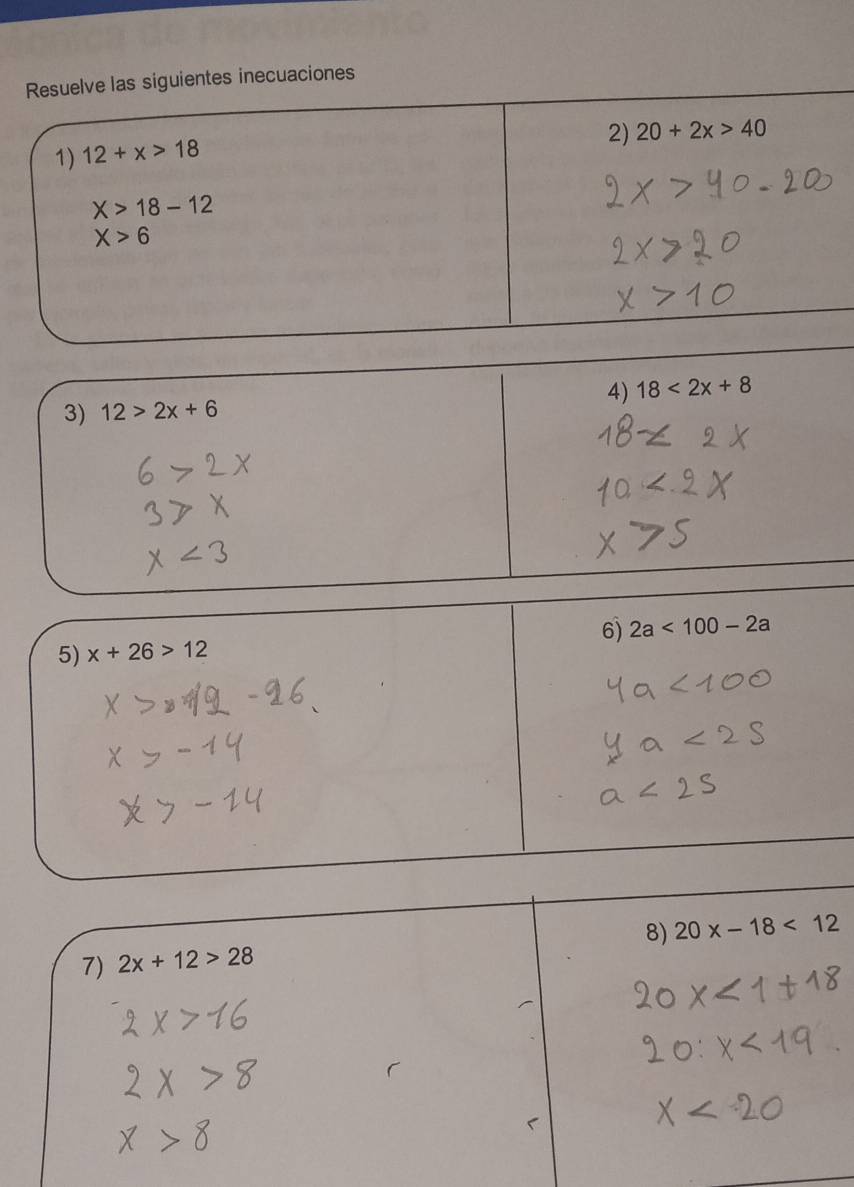 Resuelve las siguientes inecuaciones
1) 12 + x > 18
X > 18 - 12
X > 6
2) 20 + 2x > 40
2x > 40 - 20
2x > 20
x > 10
3) 12 > 2x + 6
6 > 2x
3 > x
x < 3
4) 18 < 2x + 8
18 < 2x
10 < 2x
x > 5
5) x + 26 > 12
x > 12 - 26
x > -14
x > -14
6) 2a < 100 - 2a
4a < 100
4a < 25
a < 25
7) 2x + 12 > 28
2x > 16
2x > 8
x > 8
8) 20x - 18 < 12
20x < 1 + 18
20: x < 19.
x < 20